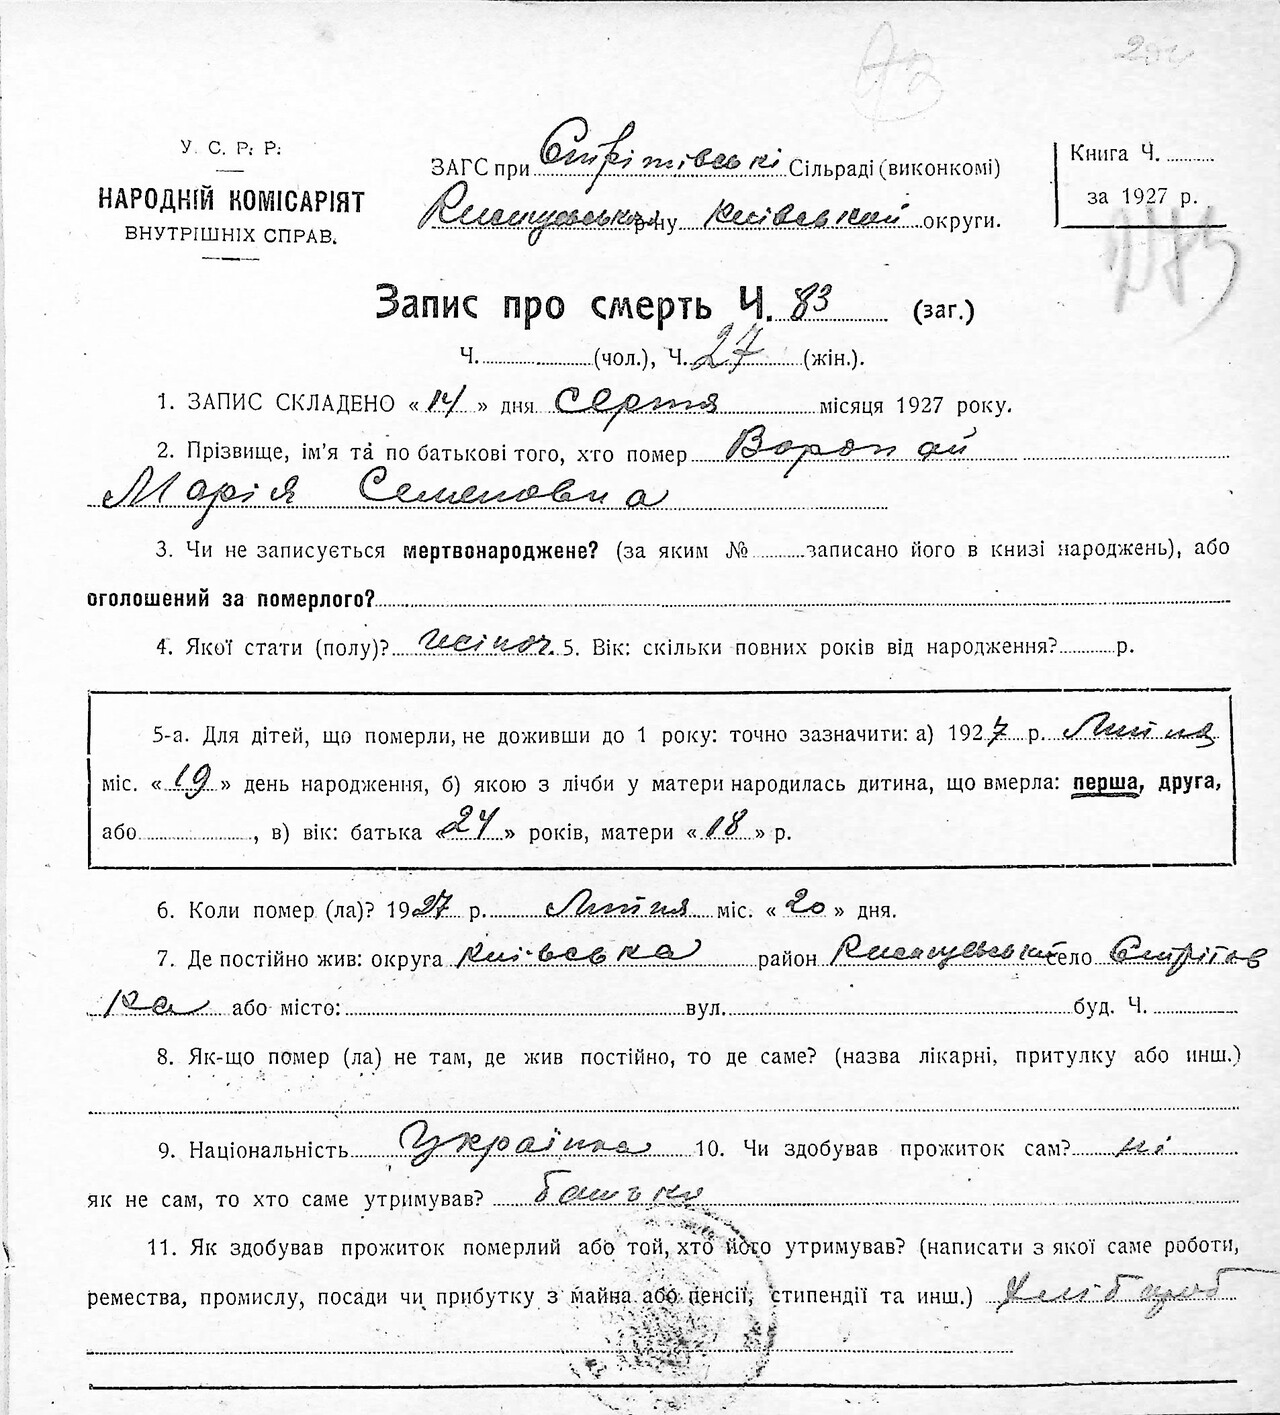 У. С. Р. Р.
НАРОДНІЙ КОМІСАРІЯТ
ВНУТРІШНІХ СПРАВ.
ЗАГС при Стрітівські Сільраді (виконкомі)
р-ну Київської округи.
Книга Ч.
за 1927 р.
275
Запис про смерть Ч. 83 (заг.)
Ч. (чол.), Ч. 27 (жін.).
1. ЗАПИС СКЛАДЕНО « 14 » дня Серпня місяця 1927 року.
2. Прізвище, ім'я та по батькові того, хто помер Воропай
Марія Семеновна
3. Чи не записується мертвонароджене? (за яким № записано його в книзі народжень), або
оголошений за померлого?
4. Якої стати (полу)? жіноч. 5. Вік: скільки повних років від народження? р.
5-а. Для дітей, що померли, не доживши до 1 року: точно зазначити: а) 1927 р. Липня
міс. « 19 » день народження, б) якою з лічби у матери народилась дитина, що вмерла: перша, друга,
або , в) вік: батька « 24 » років, матери « 18 » р.
6. Коли помер (ла)? 1927 р. Липня міс. « 20 » дня.
7. Де постійно жив: округа Київська район село Стрітов
ка або місто: вул. буд. Ч.
8. Як-що помер (ла) не там, де жив постійно, то де саме? (назва лікарні, притулку або инш.)
9. Національність Українка 10. Чи здобував прожиток сам? ні
як не сам, то хто саме утримував? батьки
11. Як здобував прожиток померлий або той, хто його утримував? (написати з якої саме роботи,
ремества, промислу, посади чи прибутку з майна або пенсії, стипендії та инш.) Хлібороб